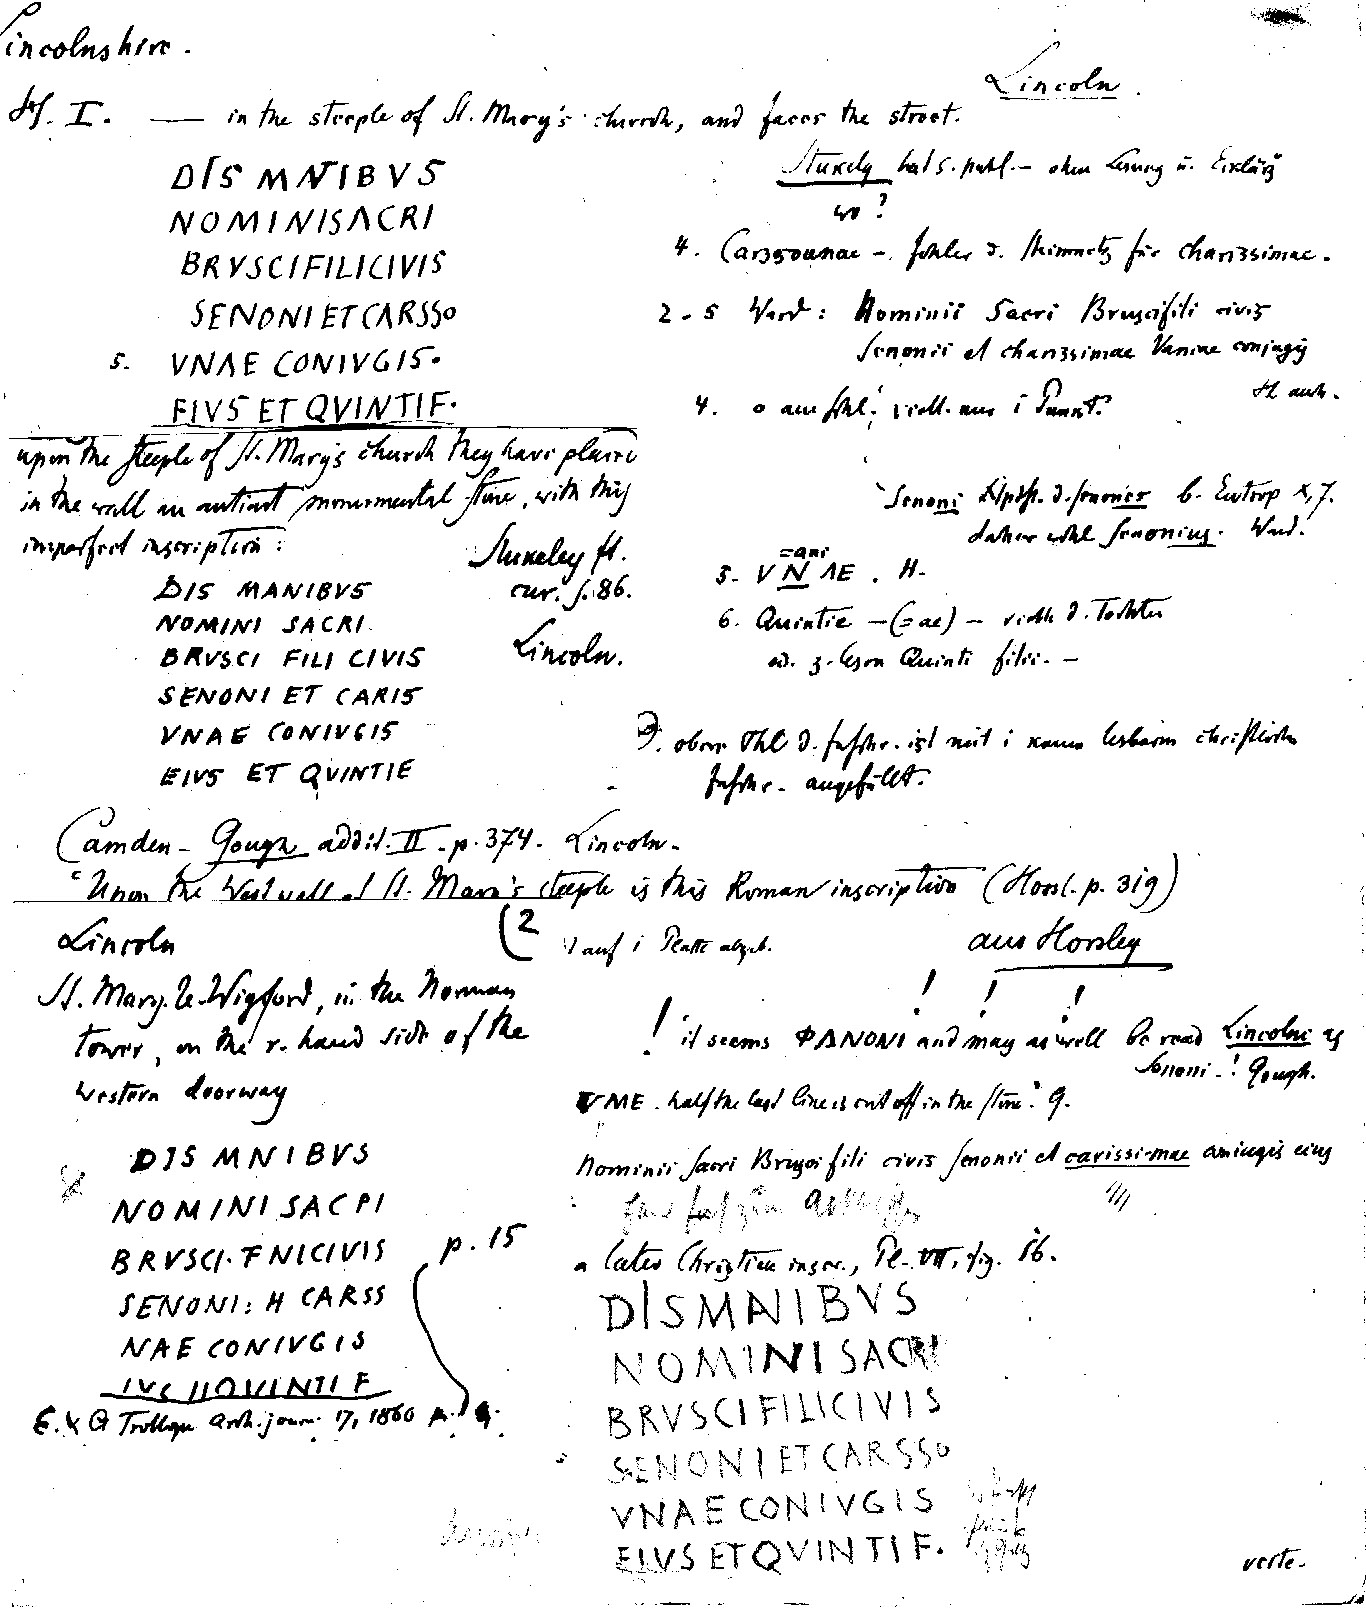 Lincolnshire.
Lincoln.
I. — in the steeple of St. Mary's church, and faces the street.
DIS MANIBVS
NOMINISACRI
BRVSCIFILICIVIS
SENONI ET CARSSO
5. VNAE CONIVGIS.
EIVS ET QVINTIF.
Stukely hat s. publ. — ohne Lesung u. Erklärg
wo?
4. Carssounae — fehler d. Steinmetz für charissimae.
2-5 Ward: Nominii Sacri Bruscifili civis
Senonii et charissimae Vaniae conjugis
4.
Senoni d. senones b. Eutrop X, 7.
daher wohl Senonius. Ward.
=ani
5. VNAE. H.
6. Quintie — (=ae) — vielh d. Tochter
od. z. lesen Quinti filii. —
obere Thl d. Inschr. ist mit 1 kaum lesbaren christlichen
Inschr. angefüllt.
upon the steeple of St. Mary's church they have placed
in the wall an antient monumental stone, with this
imperfect inscription:
Stukeley It.
cur. p. 86.
Lincoln.
DIS MANIBVS
NOMINI SACRI
BRVSCI FILI CIVIS
SENONI ET CARIS
VNAE CONIVGIS
EIVS ET QVINTIE
Camden - Gough addit. II. p. 374. Lincoln.
"Upon the West wall of St. Mary's steeple is this Roman inscription (Horsl. p. 319)
Lincoln
St. Mary-le-Wigford, in the Norman
Tower, on the r. hand side of the
western doorway
(2
auf 1 Platte abgeb.
aus Horsley
! ! !
! it seems PANONI and may as well be read Lincolni as
Senoni-! Gough.
VME. half the last line is cut off in the stone". G.
Nominii Sacri Brusci fili civis Senonii et carissimae coniugis eius
a later Christian inscr., Pl. VII, fig. 56.
DIS MNIBVS
NOMINI SACPI
BRVSCI. FNICIVIS
SENONI: H CARSS
NAE CONIVGIS
IVC IIQVINTI F
p. 15
E. Trollope Arch. journ. 17, 1860 p.
DISMANIBVS
NOMINISACRI
BRVSCIFILICIVIS
SENONIETCARSSO
VNAECONIVGIS
EIVSETQVINTIF.
verte.